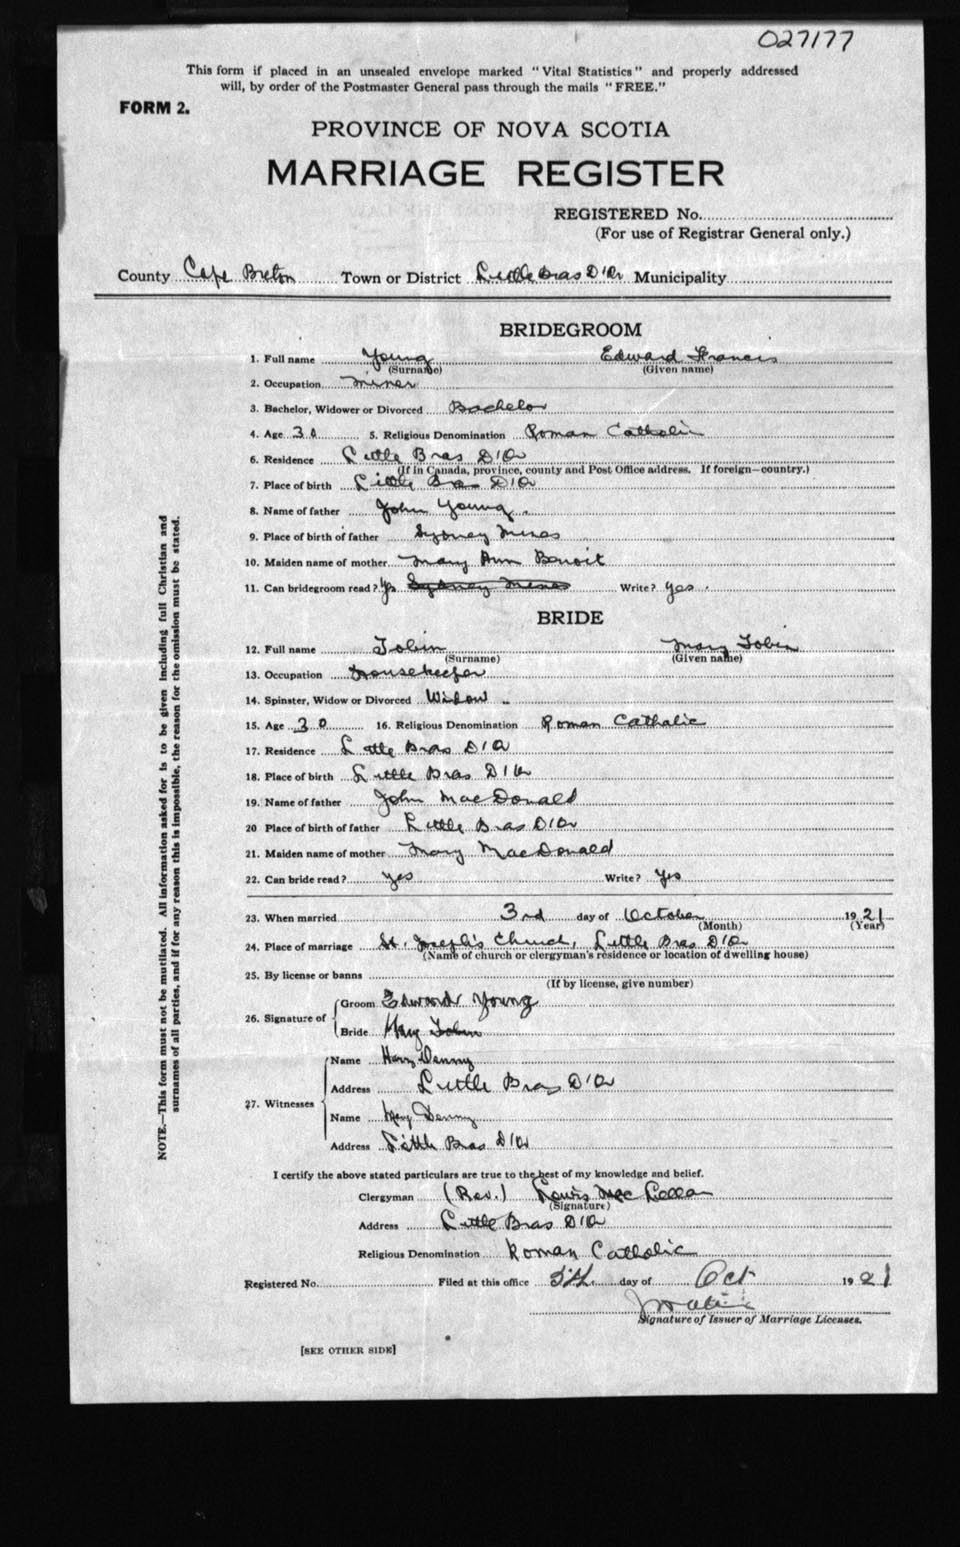 027177
This form if placed in an unsealed envelope marked "Vital Statistics" and properly addressed
will, by order of the Postmaster General pass through the mails "FREE."
FORM 2.
PROVINCE OF NOVA SCOTIA
MARRIAGE REGISTER
REGISTERED No.
(For use of Registrar General only.)
County Cape Breton Town or District Little Bras D'Or Municipality
BRIDEGROOM
1. Full name Young Edward Francis
(Surname) (Given name)
2. Occupation Miner
3. Bachelor, Widower or Divorced Bachelor
4. Age 30 5. Religious Denomination Roman Catholic
6. Residence Little Bras D'Or
(If in Canada, province, county and Post Office address. If foreign—country.)
7. Place of birth Little Bras D'Or
8. Name of father John Young
9. Place of birth of father Sydney Mines
10. Maiden name of mother Mary Ann Benoit
11. Can bridegroom read? Yes Sydney Mines Write? Yes.
BRIDE
12. Full name Tobin Mary Tobin
(Surname) (Given name)
13. Occupation Housekeeper
14. Spinster, Widow or Divorced Widow
15. Age 30 16. Religious Denomination Roman Catholic
17. Residence Little Bras D'Or
18. Place of birth Little Bras D'Or
19. Name of father John MacDonald
20 Place of birth of father Little Bras D'Or
21. Maiden name of mother Mary MacDonald
22. Can bride read? yes Write? Yes
23. When married 3rd day of October 1921
(Month) (Year)
24. Place of marriage St. Joseph's Church, Little Bras D'Or
(Name of church or clergyman's residence or location of dwelling house)
25. By license or banns
(If by license, give number)
26. Signature of Groom Edward Young
Bride Mary Tobin
27. Witnesses Name Harry Denny
Address Little Bras D'Or
Name Mary Denny
Address Little Bras D'Or
I certify the above stated particulars are true to the best of my knowledge and belief.
Clergyman (Rev.) Lewis MacLellan
(Signature)
Address Little Bras D'Or
Religious Denomination Roman Catholic
Registered No. Filed at this office 5th day of Oct 1921
Signature of Issuer of Marriage Licenses.
[SEE OTHER SIDE]
NOTE.—This form must not be mutilated. All information asked for is to be given including full Christian and
surnames of all parties, and if for any reason this is impossible, the reason for the omission must be stated.